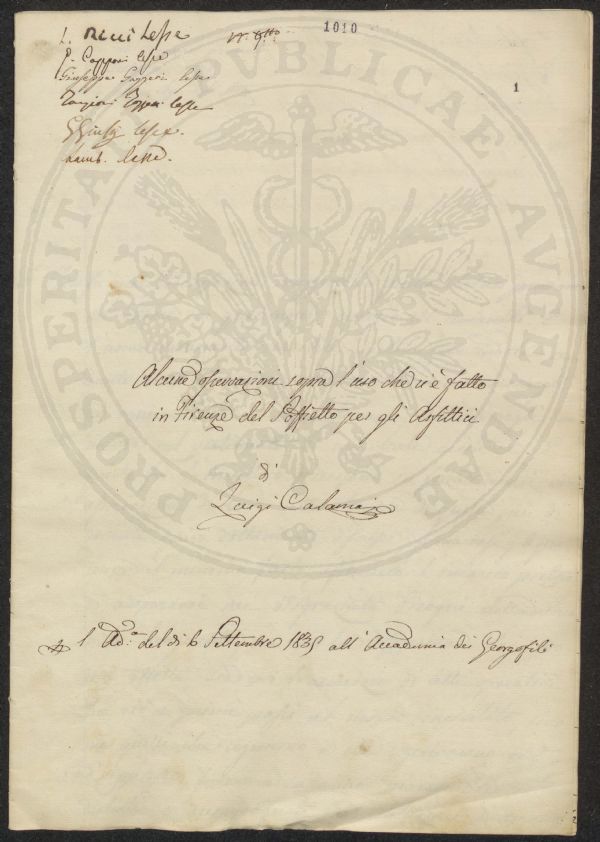 L. Ricci Lesse
1010
1
G. Capponi lesse
Giuseppe Gazzeri lesse
Targioni Tozzetti lesse
G Giuly lesse.
Lamb. lesse.
PROSPERITATI PVBLICAE AVGENDAE
Alcune osservazioni sopra l'uso che si è fatto
in Firenze del Soffietto per gli Asfittici
di
Luigi Calamai
l'Ad.a del di 6 Settembre 1835 all'Accademia dei Georgofili